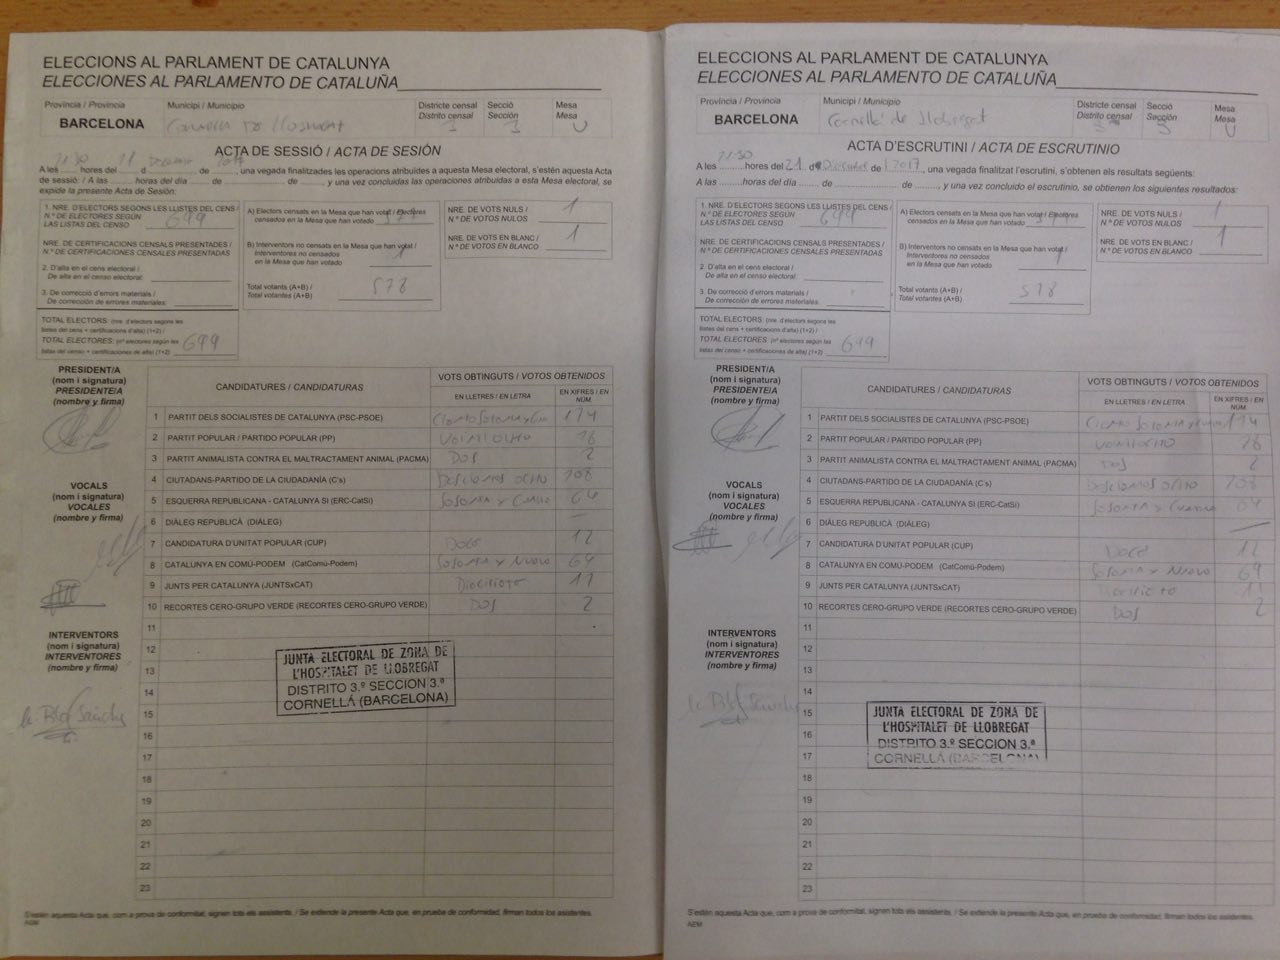 ELECCIONS AL PARLAMENT DE CATALUNYA
ELECCIONES AL PARLAMENTO DE CATALUÑA
Província / Provincia Municipi / Municipio Districte censal Secció Mesa
Distrito censal Sección Mesa
BARCELONA 3 3 U
ACTA DE SESSIÓ / ACTA DE SESIÓN
A les hores del d de , una vegada finalitzades les operacions atribuides a aquesta Mesa electoral, s'estén aquesta Acta
de sessió: / A las hores del día de de , y una vez concluidas las operaciones atribuidas a esta Mesa electoral, se
expide la presente Acta de Sesión:
1. NRE. D'ELECTORS SEGONS LES LLISTES DEL CENS /
N.º DE ELECTORES SEGÚN
LAS LISTAS DEL CENSO 699
NRE. DE CERTIFICACIONS CENSALS PRESENTADES /
N.º DE CERTIFICACIONES CENSALES PRESENTADAS
2. D'alta en el cens electoral /
De alta en el censo electoral:
3. De correcció d'errors materials /
De corrección de errores materiales:
TOTAL ELECTORS: (nre. d'electors segons les
llistes del cens + certificacions d'alta) (1+2) /
TOTAL ELECTORES: (nº electores según las
listas del censo + certificaciones de alta) (1+2) 699
A) Electors censats en la Mesa que han votat / Electores
censados en la Mesa que han votado 577
B) Interventors no censats en la Mesa que han votat /
Interventores no censados
en la Mesa que han votado 1
Total votants (A+B) /
Total votantes (A+B) 578
NRE. DE VOTS NULS /
N.º DE VOTOS NULOS 1
NRE. DE VOTS EN BLANC /
N.º DE VOTOS EN BLANCO 1
PRESIDENT/A
(nom i signatura)
PRESIDENTE/A
(nombre y firma)
VOCALS
(nom i signatura)
VOCALES
(nombre y firma)
INTERVENTORS
(nom i signatura)
INTERVENTORES
(nombre y firma)
CANDIDATURES / CANDIDATURAS VOTS OBTINGUTS / VOTOS OBTENIDOS
EN LLETRES / EN LETRA EN XIFRES / EN NÚM.
1 PARTIT DELS SOCIALISTES DE CATALUNYA (PSC-PSOE) 174
2 PARTIT POPULAR / PARTIDO POPULAR (PP) 28
3 PARTIT ANIMALISTA CONTRA EL MALTRACTAMENT ANIMAL (PACMA) DOS 2
4 CIUTADANS-PARTIDO DE LA CIUDADANÍA (C's) 208
5 ESQUERRA REPUBLICANA - CATALUNYA SI (ERC-CatSi) 64
6 DIÀLEG REPUBLICÀ (DIÀLEG) —
7 CANDIDATURA D'UNITAT POPULAR (CUP) Doce 12
8 CATALUNYA EN COMÚ-PODEM (CatComú-Podem) 69
9 JUNTS PER CATALUNYA (JUNTSxCAT) 17
10 RECORTES CERO-GRUPO VERDE (RECORTES CERO-GRUPO VERDE) DOS 2
11
12
13
14
15
16
17
18
19
20
21
22
23
JUNTA ELECTORAL DE ZONA DE
L'HOSPITALET DE LLOBREGAT
DISTRITO 3.º SECCION 3.ª
CORNELLÁ (BARCELONA)
S'estén aquesta Acta que, com a prova de conformitat, signen tots els assistents. / Se extiende la presente Acta que, en prueba de conformidad, firman todos los asistentes.
AEM
ELECCIONS AL PARLAMENT DE CATALUNYA
ELECCIONES AL PARLAMENTO DE CATALUÑA
Província / Provincia Municipi / Municipio Districte censal Secció Mesa
Distrito censal Sección Mesa
BARCELONA Cornellá de Llobregat 3 3 U
ACTA D'ESCRUTINI / ACTA DE ESCRUTINIO
A les 21:30 hores del 21 de Diciembre de 2017, una vegada finalitzat l'escrutini, s'obtenen els resultats següents:
A las hores del día de de , y una vez concluido el escrutinio, se obtienen los siguientes resultados:
1. NRE. D'ELECTORS SEGONS LES LLISTES DEL CENS /
N.º DE ELECTORES SEGÚN
LAS LISTAS DEL CENSO 699
NRE. DE CERTIFICACIONS CENSALS PRESENTADES /
N.º DE CERTIFICACIONES CENSALES PRESENTADAS
2. D'alta en el cens electoral /
De alta en el censo electoral:
3. De correcció d'errors materials /
De corrección de errores materiales:
TOTAL ELECTORS: (nre. d'electors segons les
llistes del cens + certificacions d'alta) (1+2) /
TOTAL ELECTORES: (nº electores según las
listas del censo + certificaciones de alta) (1+2) 699
A) Electors censats en la Mesa que han votat / Electores
censados en la Mesa que han votado 577
B) Interventors no censats en la Mesa que han votat /
Interventores no censados
en la Mesa que han votado 1
Total votants (A+B) /
Total votantes (A+B) 578
NRE. DE VOTS NULS /
N.º DE VOTOS NULOS 1
NRE. DE VOTS EN BLANC /
N.º DE VOTOS EN BLANCO 1
PRESIDENT/A
(nom i signatura)
PRESIDENTE/A
(nombre y firma)
VOCALS
(nom i signatura)
VOCALES
(nombre y firma)
INTERVENTORS
(nom i signatura)
INTERVENTORES
(nombre y firma)
CANDIDATURES / CANDIDATURAS VOTS OBTINGUTS / VOTOS OBTENIDOS
EN LLETRES / EN LETRA EN XIFRES / EN NÚM.
1 PARTIT DELS SOCIALISTES DE CATALUNYA (PSC-PSOE) 174
2 PARTIT POPULAR / PARTIDO POPULAR (PP) 28
3 PARTIT ANIMALISTA CONTRA EL MALTRACTAMENT ANIMAL (PACMA) DOS 2
4 CIUTADANS-PARTIDO DE LA CIUDADANÍA (C's) 208
5 ESQUERRA REPUBLICANA - CATALUNYA SI (ERC-CatSi) 64
6 DIÀLEG REPUBLICÀ (DIÀLEG) —
7 CANDIDATURA D'UNITAT POPULAR (CUP) Doce 12
8 CATALUNYA EN COMÚ-PODEM (CatComú-Podem) 69
9 JUNTS PER CATALUNYA (JUNTSxCAT) 17
10 RECORTES CERO-GRUPO VERDE (RECORTES CERO-GRUPO VERDE) DOS 2
11
12
13
14
15
16
17
18
19
20
21
22
23
JUNTA ELECTORAL DE ZONA DE
L'HOSPITALET DE LLOBREGAT
DISTRITO 3.º SECCION 3.ª
CORNELLÁ (BARCELONA)
S'estén aquesta Acta que, com a prova de conformitat, signen tots els assistents. / Se extiende la presente Acta que, en prueba de conformidad, firman todos los asistentes.
AEM